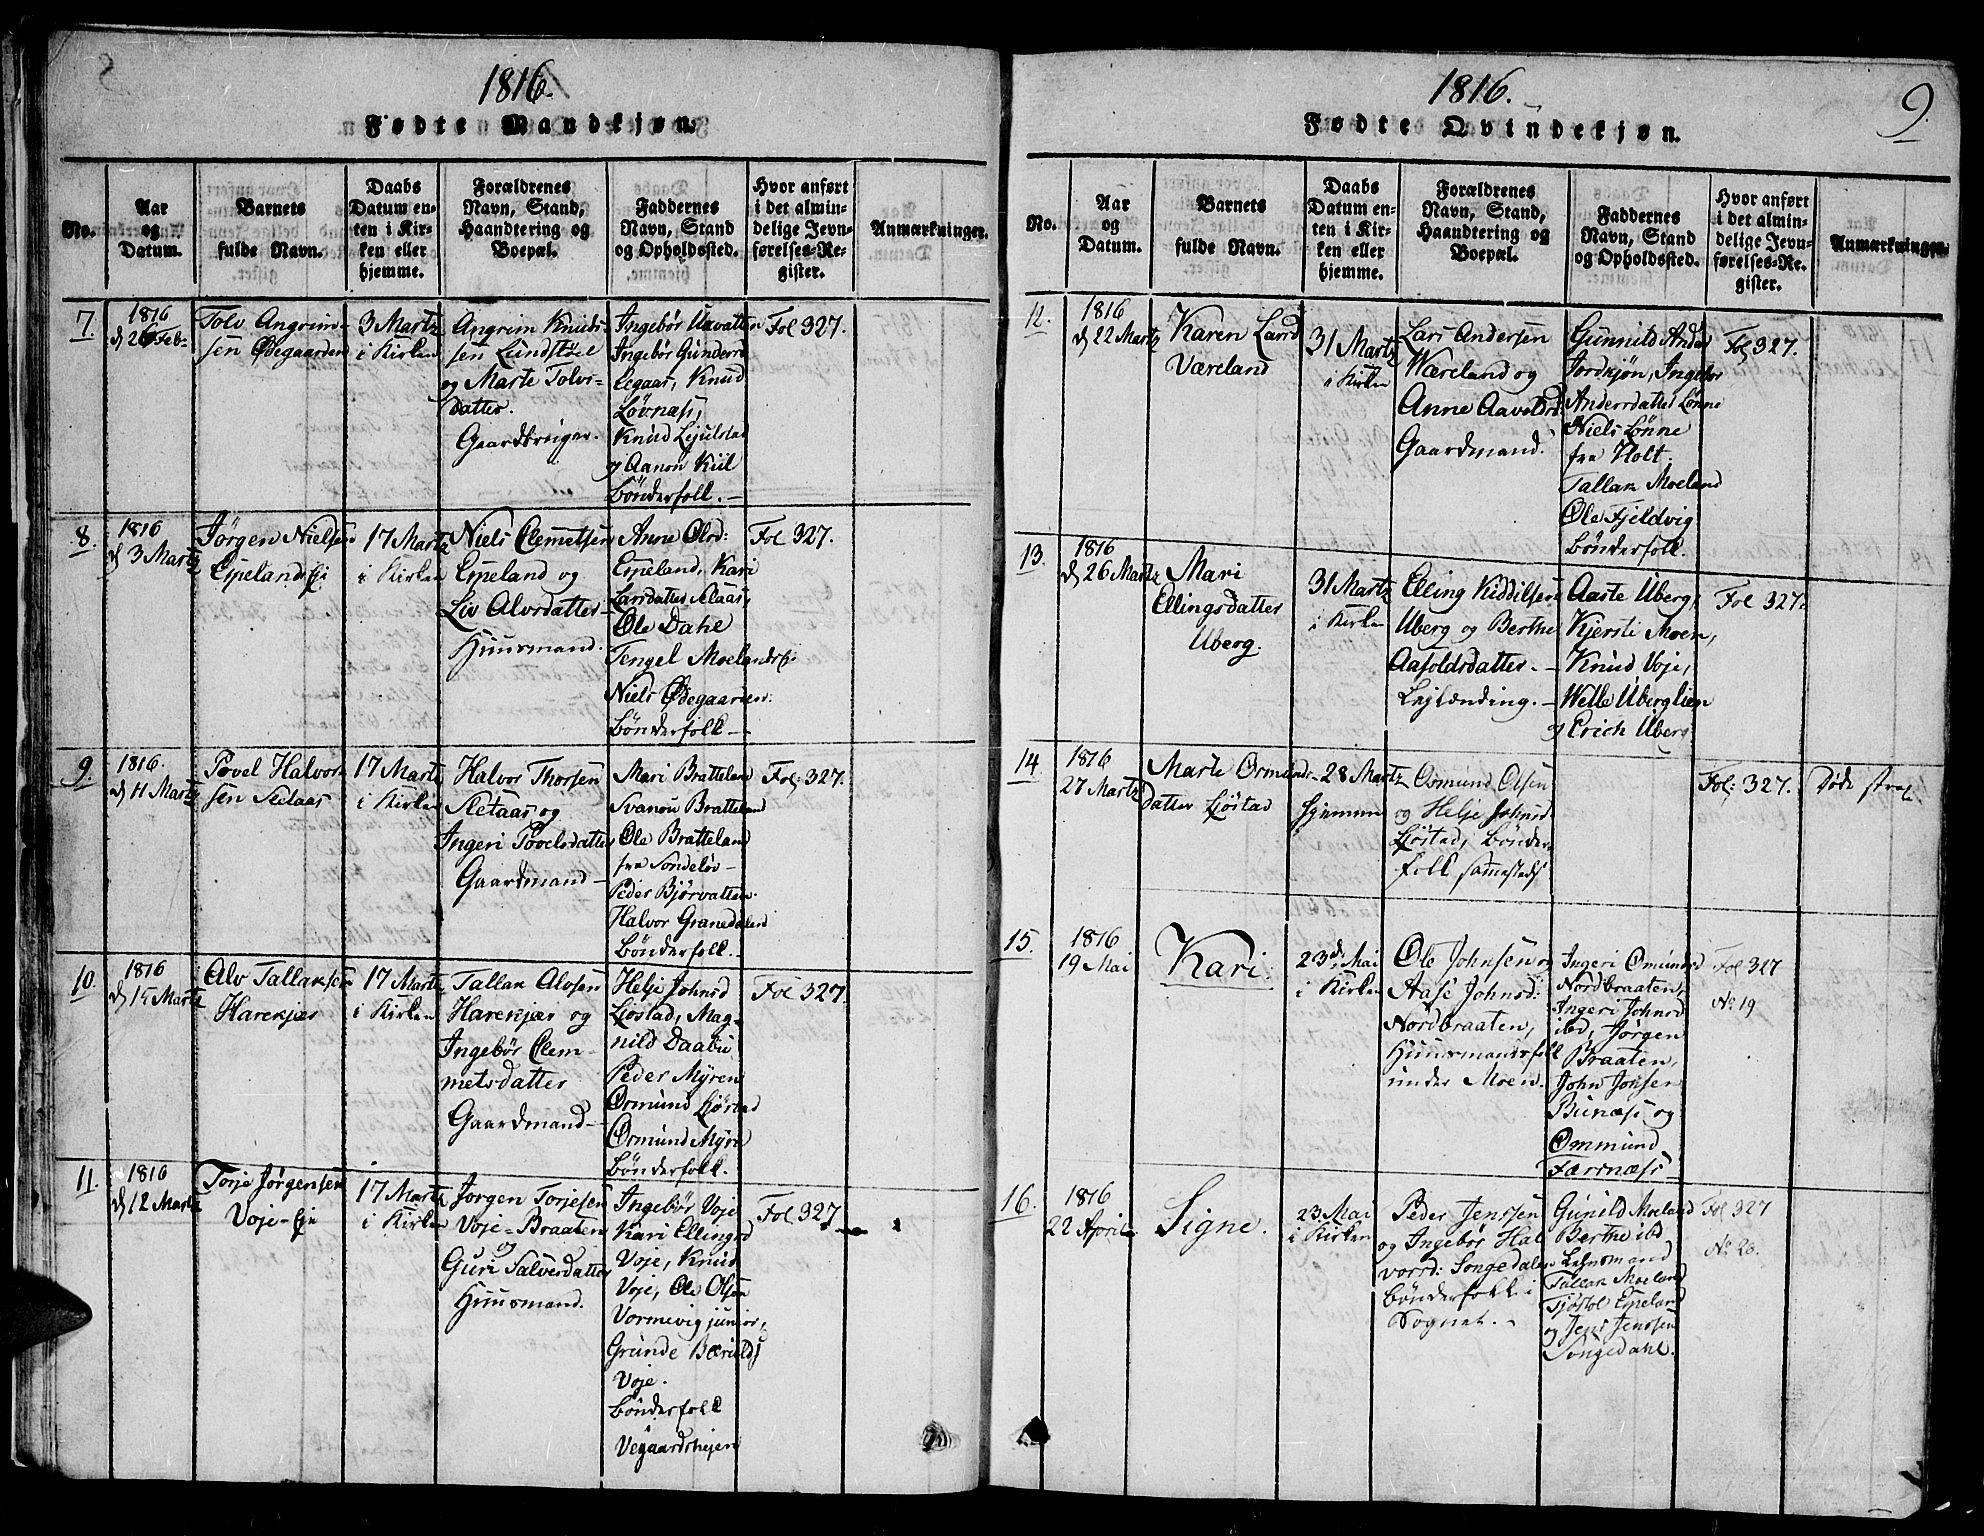 1816.
Fødte Mandkjøn.
No.
Aar
og
Datum.
Barnets
fulde Navn.
Daabs
Datum en-
ten i Kir-
ken eller
hjemme.
Forældrenes
Navn, Stand,
Haandtering og
Boepæl.
Faddernes
Navn, Stand
og Opholdssted.
Hvor anført
i det almin-
delige Jevn-
førelses-Re-
gister.
Anmærkninger.
7.
1816
d 26 Feb-
Tolv Angrim-
sen Ødegaarden
3 Martz
i Kirken
Angrim Knuds-
sen Lundstøel
og Marte Tolvs-
datter.
Gaardbruger.
Ingebör Uavatten
Ingebör Gunderd
Legaas, Knud
Løvnæs,
Knud
og Aanon
Bönderfolk.-
Fol 327.
8.
1816
d 3 Martz
Jörgen Nielsen
Espelands Eje
17 Martz
i Kirken
Niels Clemetsen
Espeland og
Liv Alvsdatter-
Huusmand.
Anne Olsd:
Espeland, Kari
Larsdatter Sclaas,
Ole Dahl
Tengel Moelands Eje
Niels Ødegaarden.
Bönderfolk-
Fol 327.
9.
1816.
d 11 Martz
Povel Halvor-
sen Scetaas
17 Martz
i Kirken
Halvor Thorsen
Scetaas og
Ingeri Povelsdatter
Gaardmand-
Mari Bratteland
Svanou Bratteland
Ole Bratteland
fra Sondeløv-
Peder Bjørvatten
Halvor Granedalen
Bönderfolk.-
Fol: 327.
10.
1816
d 15 Martz
Alv Tallaksen
Harekjær
17 Martz
i Kirken
Tallak Alvsen
Harekjær og
Ingebör Clem-
metsdatter
Gaardmand-
Helje Johnsd
Ljøstad, Mag-
nild Daabu
Peder Myren
Ormund Ljøstad
Ormund Myre
Bönderfolk.
Fol 327.
11.
1816
d 12 Martz
Torje Jörgensen
Voje-Eje
17 Martz
i Kirken
Jörgen Torjesen
Voje-Braaten
og
Guri Salvesdatter
Huusmand.
Ingebör Voje
Kari Ellingsd
Voje, Knud
Voje, Ole Olsen
Vormevig junior,
Grunde Bærulds
Voje.
Bönderfolk
Vegaardshejen
Fol 327
1816.
9.
Fødte Qvindekjøn.
No.
Aar
og
Datum.
Barnets
fulde Navn.
Daabs
Datum en-
ten i Kir-
ken eller
hjemme.
Forældrenes
Navn, Stand,
Haandtering og
Boepæl.
Faddernes
Navn, Stand
og Opholdssted.
Hvor anført
i det almin-
delige Jevn-
førelses-Re-
gister.
Anmærkninger.
12.
1816
d 22 Martz
Karen Larsd
Væreland
31 Martz
i Kirken
Lars Andersen
Wæreland og
Anne Aavoldsd.
Gaardmand.
Gunnild Andersd
Jordkjøn, Ingebör
Andersdatter Lønne
Niels Lønne
fra Holt.
Tallak Moeland
Ole Fjeldvig
Bönderfolk.
Fol 327.
13.
1816
d 26 Martz
Mari
Ellingsdatter
Uberg.
31 Martz
i Kirken
Elling Kiddilsen
Uberg og Berthe
Aasoldsdatter.-
Lejlænding.-
Aaste Uberg,
Kjersti Moen,
Knud Voje,
Welle Uberglien
og Erich Uberg
Fol 327.
14
1816
27 Martz
Marte Ormunds-
datter Ljøstad
28 Martz
Hjemme
Ormund Olsen
og Helje Johnsd
Ljøstad, Bönder-
folk sammesteds
Fol: 327.
Døde strax.
15.
1816
19 Mai
Kari.
23de Mai
i Kirken
Ole Johnsen og
Aase Johnsd:
Nordbraaten,
Huusmandsfolk
under Moen.
Ingeri Omundsd
Nordbraaten,
Ingeri Johnsd
ibd, Jörgen
Braaten,
John Jonsen
Bunæs og
Ommund
Færsnæs
Fol 327
No 19
16.
1816
22 April
Signe.
23 Mai
i Kirken
Peder Jenssen
og Ingebör Hal
vorsd: Songedalen
Bönderfolk i
Sognet.-
Gunild Moeland
Berthe ibd
Lensmand
Tallak Moeland
Tjøstol Espeland
og Jens Jenssen
Songedahl.
Fol 327
No 20.